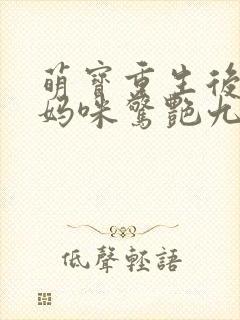 萌寶重生後
媽咪驚艷九
低聲輕語